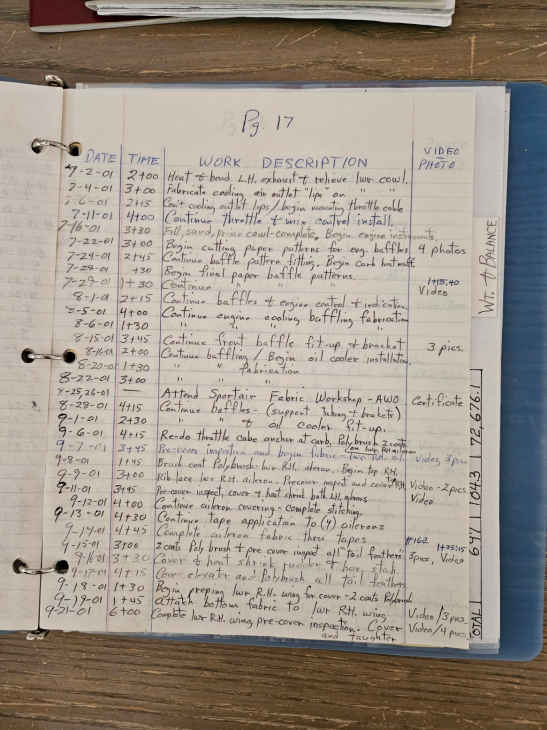 Pg. 17
DATE TIME WORK DESCRIPTION VIDEO PHOTO
7-2-01 2+00 Heat & bend L.H. exhaust & relieve lwr. cowl.
7-4-01 3+00 Fabricate cooling air outlet "lips" on " "
7-6-01 2+15 Con't cooling outlet lips/begin mounting throttle cable
7-11-01 4+00 Continue throttle & mix control install.
7-16-01 3+30 Fill, sand, prime cowl-complete. Begin engine instruments.
7-22-01 3+00 Begin cutting paper patterns for eng. baffles 4 photos
7-24-01 2+45 Continue baffle pattern fitting. Begin carb heat
+30 Begin final paper baffle patterns.
7-29-01 1+30 Continue " " " 1+15:40 Video
8-1-01 2+15 Continue baffles & engine control & indication
8-5-01 4+00 Continue engine cooling baffling fabrication
8-6-01 1+30 " " " "
8-15-01 3+45 Continue front baffle fit-up & bracket 3 pics.
8-16-01 2+00 Continue baffling / Begin oil cooler installation.
8-20-01 1+30 " " fabrication
8-22-01 3+00 " " "
8-25,26-01 Attend Sportair Fabric Workshop - AWO Certificate
8-28-01 4+15 Continue baffles - (support tubing & brackets)
9-1-01 2+30 " " & oil cooler fit-up.
9-6-01 4+15 Re-do throttle cable anchor at carb, Polybrush 2 coats
9-7-01 3+45 Pre-cover inspection and begin fabric Video, 3 pics
9-8-01 1+45 Brush coat Polybrush lwr R.H. aileron. Begin top R.H.
9-9-01 3+00 Rib lace lwr R.H. aileron. Precover inspect and cover Video - 2 pics
9-11-01 3+45 Pre-cover inspect, cover & heat shrink both L.H. ailerons Video
9-12-01 4+00 Continue aileron covering - complete stitching.
9-13-01 4+30 Continue tape application to (4) ailerons
9-14-01 4+45 Complete aileron fabric thru tapes
9-15-01 3+00 2 coats Poly brush & pre cover inspect all tail feathers #162 1+35:15 3 pics, Video
9-16-01 3+30 Cover & heat shrink rudder & hor. stab.
9-17-01 4+15 Cover elevator and Polybrush, all tail feathers
9-18-01 1+30 Begin preping lwr. R.H. wing for cover - 2 coats Polybrush
9-19-01 1+45 Attach bottom fabric to lwr R.H. wing Video/3 pics.
9-21-01 6+00 Complete lwr R.H. wing pre-cover inspection. Cover Video/4 pics.
and taughten
WT. & BALANCE
OTAL 697 1043 72,676.1